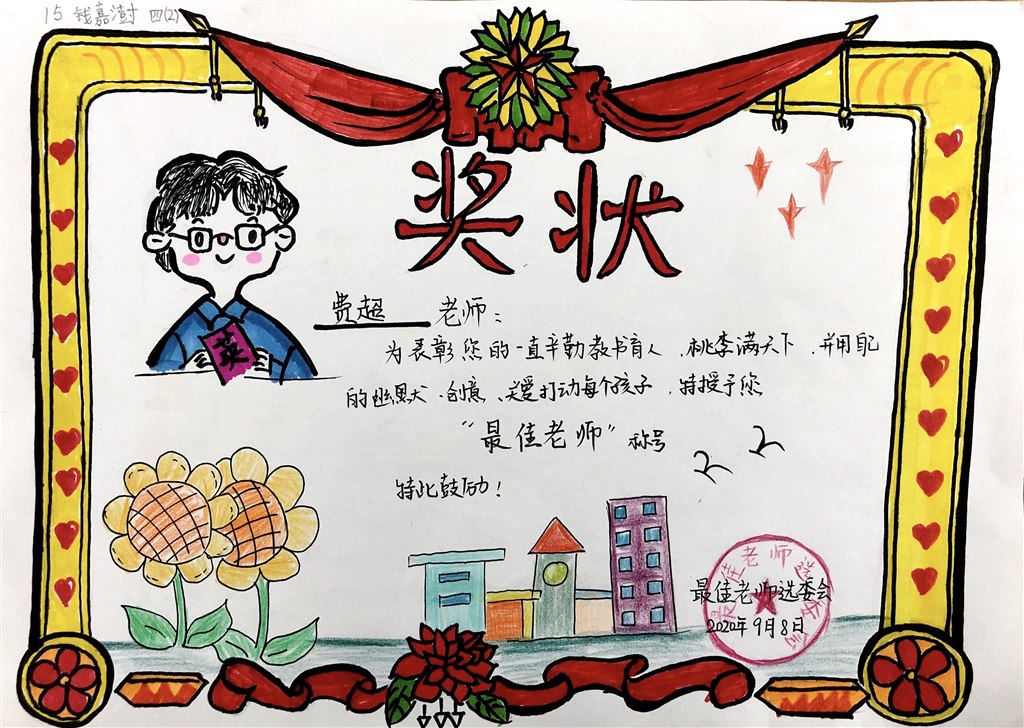 15 钱嘉澍 四(2)
奖状
费超 老师：
为表彰您的一直辛勤教书育人、桃李满天下、并用自己
的幽默、创意、关爱打动每个孩子，特授予您
“最佳老师”称号
特此鼓励！
最佳老师选委会
最佳老师选委会
2020年9月8日